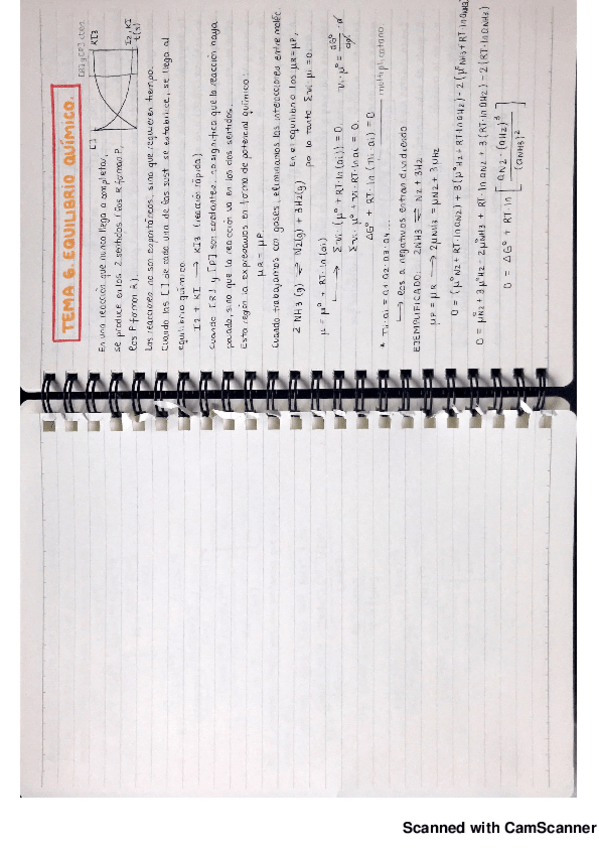 TEMA 6. EQUILIBRIO QUÍMICO.
En una reacción que nunca llega a completar,
se produce en los 2 sentidos (los R forman P,
los P forman R).
[ ]
[R] y [P] ctan.
KI3
I2, KI
t(s)
Las reacciones no son espontáneas, sino que requieren tiempo.
Cuando las [ ] de cada una de las sust. se estabilice, se llega al
equilibrio químico.
I2 + KI → KI3 (reacción rápida)
Cuando [R] y [P] son constantes, no significa que la reacción haya
parado, sino que la reacción va en los dos sentidos.
Esta regla la expresamos en forma de potencial químico:
μR = μP.
Cuando trabajamos con gases, eliminamos las interacciones entre moléc.
2 NH3 (g) ⇌ N2(g) + 3H2(g)
En el equilibrio los μR=μP,
por lo tanto Σνi μi = 0.
μ = μ° + RT·ln(ai)
→ Σνi·(μ° + RT·ln(ai)) = 0.
Σνi·μ° + νi·RT·ln ai = 0.
ΔG° + RT·ln(πi·ai) = 0
* πi·ai = a1·a2·a3·a4... multiplicatorio
→ los a negativos entran dividiendo
EJEMPLIFICADO: 2NH3 ⇌ N2 + 3H2
μP = μR → 2μNH3 = μN2 + 3μH2
0 = (μ°N2 + RT·ln aN2) + 3(μ°H2 + RT·ln aH2) - 2(μ°NH3 + RT·ln aNH3)
0 = μ°N2 + 3μ°H2 - 2μ°NH3 + RT·ln aN2 + 3(RT·ln aH2) - 2(RT·ln aNH3)
0 = ΔG° + RT ln [aN2·(aH2)³ / (aNH3)²]
Scanned with CamScanner